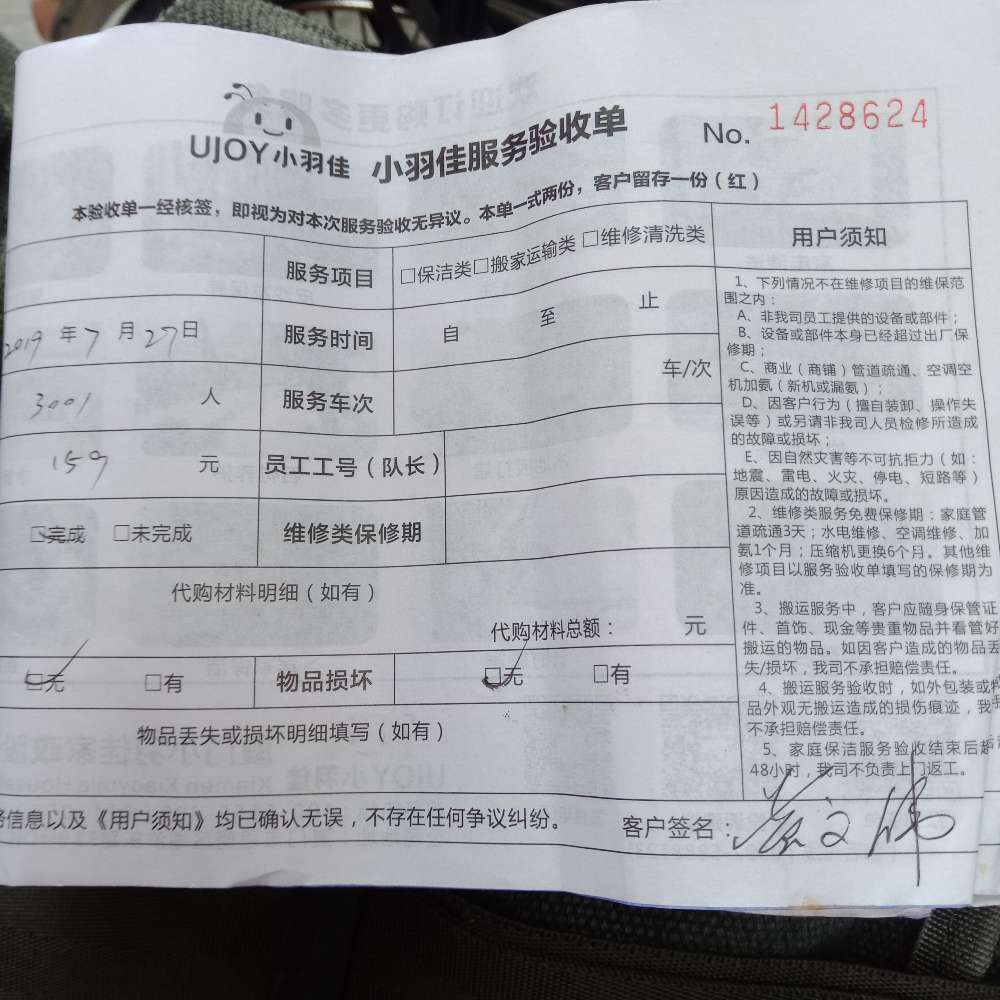 UJOY小羽佳 小羽佳服务验收单 No. 1428624
本验收单一经核签，即视为对本次服务验收无异议。本单一式两份，客户留存一份（红）
服务项目 □保洁类□搬家运输类 □维修清洗类
2019 年 7 月 27 日 服务时间 自 至 止
3001 人 服务车次 车/次
159 元 员工工号（队长）
□完成 □未完成 维修类保修期
代购材料明细（如有）
代购材料总额： 元
□无 □有 物品损坏 □无 □有
物品丢失或损坏明细填写（如有）
信息以及《用户须知》均已确认无误，不存在任何争议纠纷。 客户签名：
用户须知
1、下列情况不在维修项目的维保范
围之内：
A、非我司员工提供的设备或部件；
B、设备或部件本身已经超过出厂保
修期；
C、商业（商铺）管道疏通、空调空
机加氨（新机或漏氨）；
D、因客户行为（擅自装卸、操作失
误等）或另请非我司人员检修所造成
的故障或损坏；
E、因自然灾害等不可抗拒力（如：
地震、雷电、火灾、停电、短路等）
原因造成的故障或损坏。
2、维修类服务免费保修期：家庭管
道疏通3天；水电维修、空调维修、加
氨1个月；压缩机更换6个月。其他维
修项目以服务验收单填写的保修期为
准。
3、搬运服务中，客户应随身保管证
件、首饰、现金等贵重物品并看管好
搬运的物品。如因客户造成的物品丢
失/损坏，我司不承担赔偿责任。
4、搬运服务验收时，如外包装或物
品外观无搬运造成的损伤痕迹，我
不承担赔偿责任。
5、家庭保洁服务验收结束后超
48小时，我司不负责上门返工。